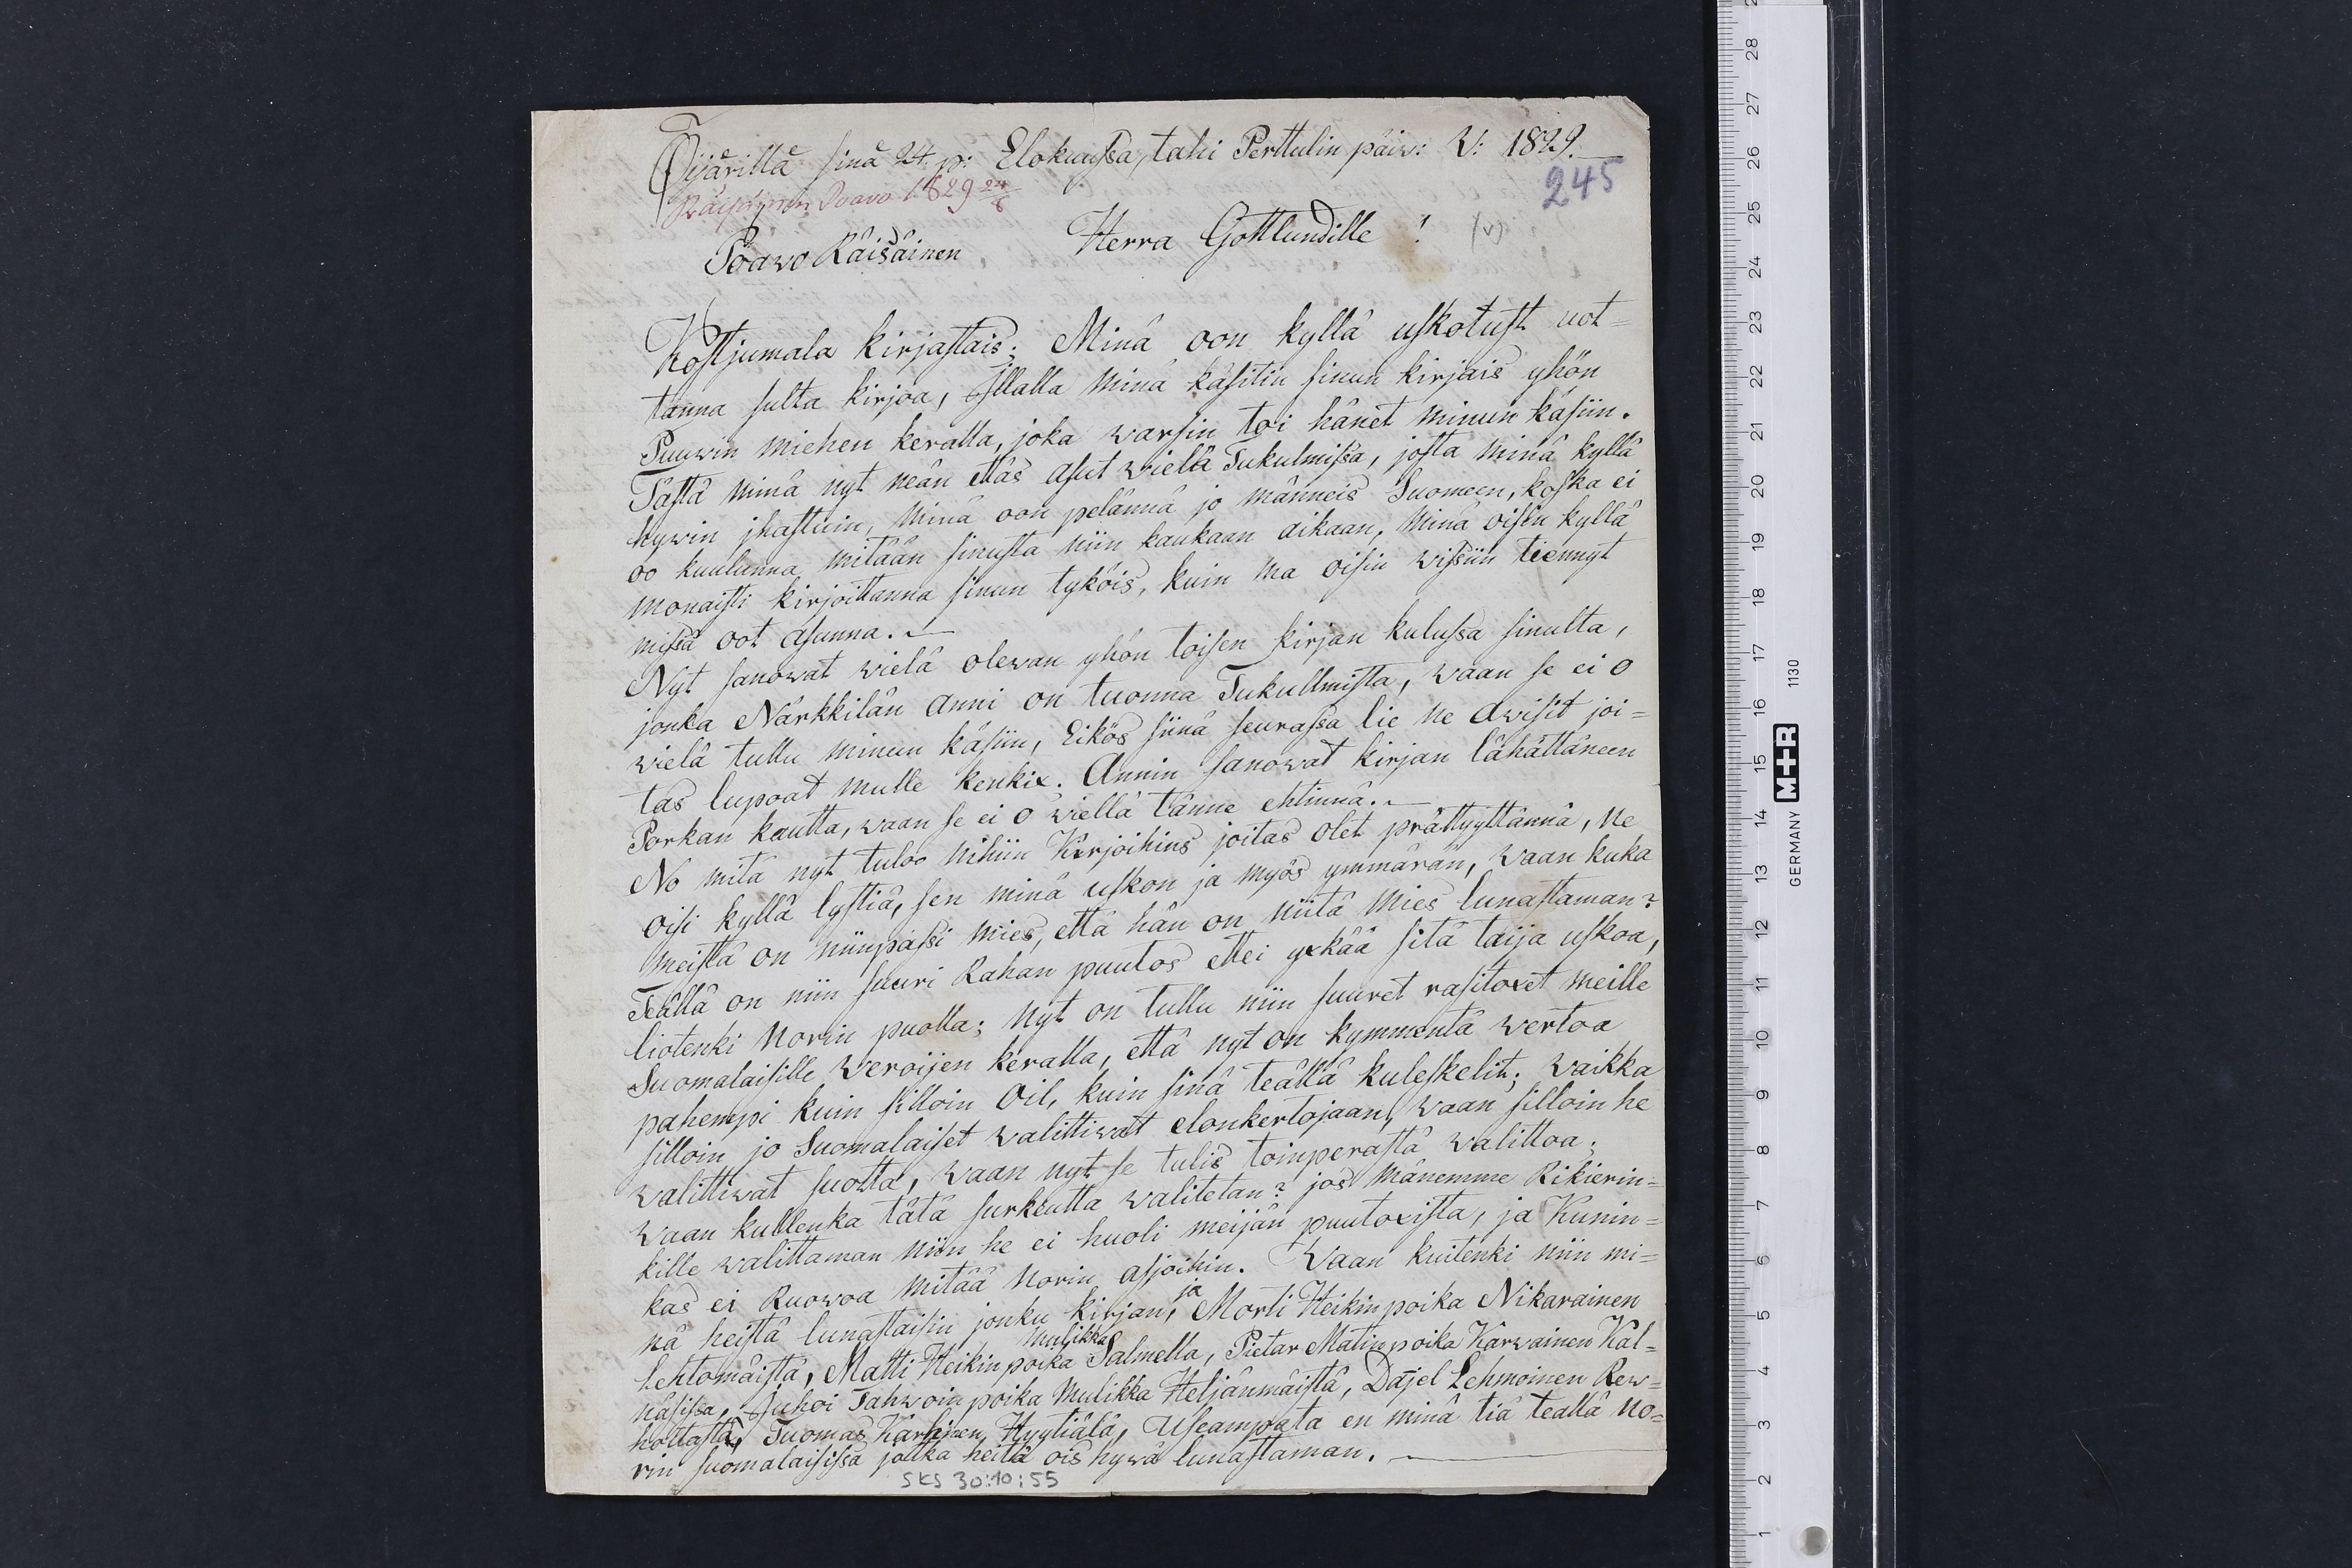 Öijärillä sinä 24. p: Elokuussa, tahi Perttulin päiv: V: 1829.
Räisäinen Poavo 1829 24/8
245
Poavo Räisäinen
Herra Gottlundille! (v)
Kostjumala kirjastais; Minä oon kyllä uskotust uot=
tanna sulta kirjoa, Illalla minä käsitin sinun kirjais yhön
Puuwin miehen keralla, joka warsin toi hänet minun käsiin.
Tästä minä nyt neän ettäs asut wielä Tukulmissa, josta minä kyllä
hywin ihastuin, minä oon pelännä jo männeis Suomeen, koska ei
oo kuulunna mitään sinusta niin kaukaan aikaan, minä oisin kyllä
monaisti kirjoittanna sinun tyköis, kuin ma oisin wissiin tiennyt
missä oot asunna. —
Nyt sanowat wielä olewan yhön toisen kirjan kulussa sinulta,
jonka Närkkilän Anni on tuonna Tukullmista, waan se ei o
wielä tullu minun käsiin, Eikös siinä seurassa lie ne Awisit joi=
tas lupoat mulle kenkix. Annin sanowat kirjan lähättäneen
Porkan kautta, waan se ei o wiellä tänne ehtinnä. —
No mitä nyt tuloo nihiin Kirjoihins joitas olet prättyyttännä, ne
oisi kyllä lystiä, sen minä uskon ja myös ymmärän, waan kuka
meistä on niinpässi mies, että hän on niitä mies lunastaman?
Teällä on niin suuri Rahan puutos ettei yxkää sitä taija uskoa,
liotenki Norin puolla; nyt on tullu niin suuret rasitoxet meille
Suomalaisille Weroijen keralla, että nyt on kymmentä wertoa
pahempi kuin silloin Oil, kuin sinä teällä kuleskelit; waikka
silloin jo Suomalaiset walittiwat elonkertojaan, waan silloin he
walittiwat suotta, waan nyt se tulis toinperästä walittoa;
waan kullenka tätä surkeutta walitetan? jos mänemme Rikierin=
kille walittaman niin he ei huoli meijän puutoxista, ja Kunin=
kas ei Ruowoa mitää Norin asjoihin. Waan kuitenki niin mi=
nä heistä lunastaisin jonku kirjan, ja Morti Heikinpoika Nikarainen
Lehtomäistä, Matti Heikinpoika Mulikka Salmella, Pietar Matinpoika Karwainen Käl=
näsissä, Juhoi Tahwoinpoika Mulikka Heljänmäistä, Dajel Lehmoinen Rew=
holtasta, Tuomas Karhinen Hyytiälä, Useampata en minä tiä teällä No=
rin suomalaisissa jotka heitä ois hywä lunastaman. —
SKS 30:10:55
28
27
26
25
24
23
22
21
20
19
18
17
16
15
14
13
12
11
10
9
8
7
6
5
4
3
2
1
GERMANY M+R 1130